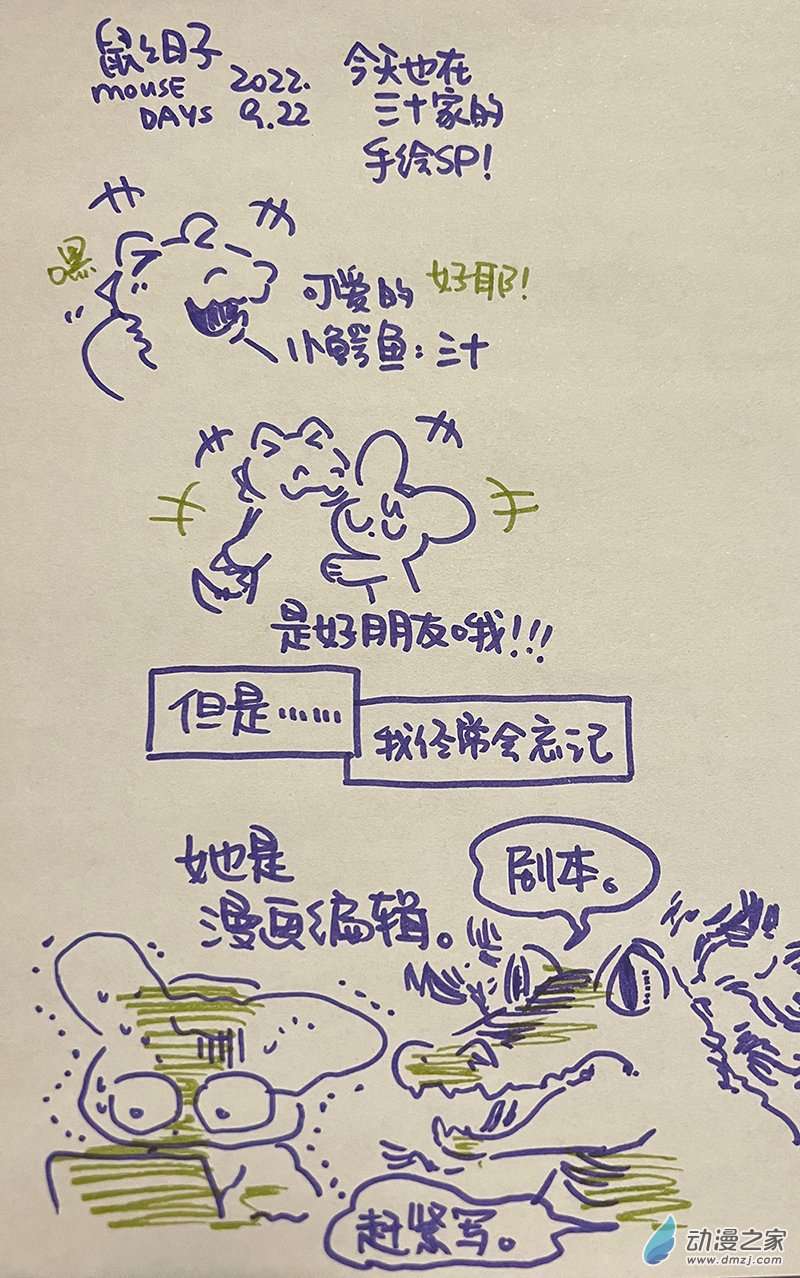 鼠鼠日子
MOUSE
DAYS
2022.
9.22
今天也在
三十家的
手绘SP!
嘿
好耶!
可爱的
小鳄鱼:三十
是好朋友哦!!!
但是……
我经常会忘记
她是
漫画编辑。
剧本。
赶紧写。
动漫之家
www.dmzj.com